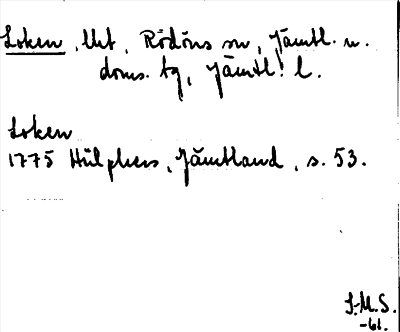 Loken, Utt, Rödöns sn, Jämtl. n.
doms. tg, Jämtl. l.
Loken
1775 Hülphers, Jämtland, s. 53.
S.M.S.
-61.